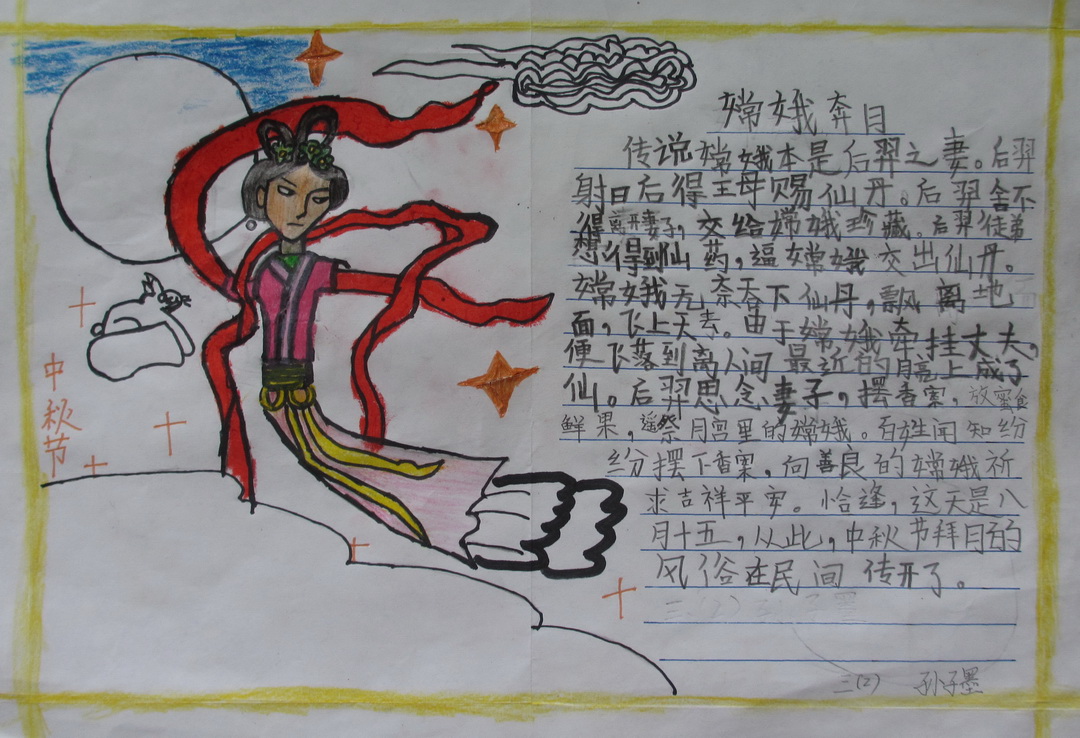 嫦娥奔月
传说嫦娥本是后羿之妻。后羿
射日后得王母赐仙丹。后羿舍不
得离开妻子，交给嫦娥珍藏。后羿徒弟
想得到仙药，逼嫦娥交出仙丹。
嫦娥无奈吞下仙丹，飘离地
面，飞上天去。由于嫦娥牵挂丈夫，
便飞落到离人间最近的月亮上成了
仙。后羿思念妻子，摆香案，放蜜食
鲜果，遥祭月宫里的嫦娥。百姓闻知纷
纷摆下香案，向善良的嫦娥祈
求吉祥平安。恰逢，这天是八
月十五，从此，中秋节拜月的
风俗在民间传开了。
三(2) 孙子墨
三(2) 孙子墨
中秋节